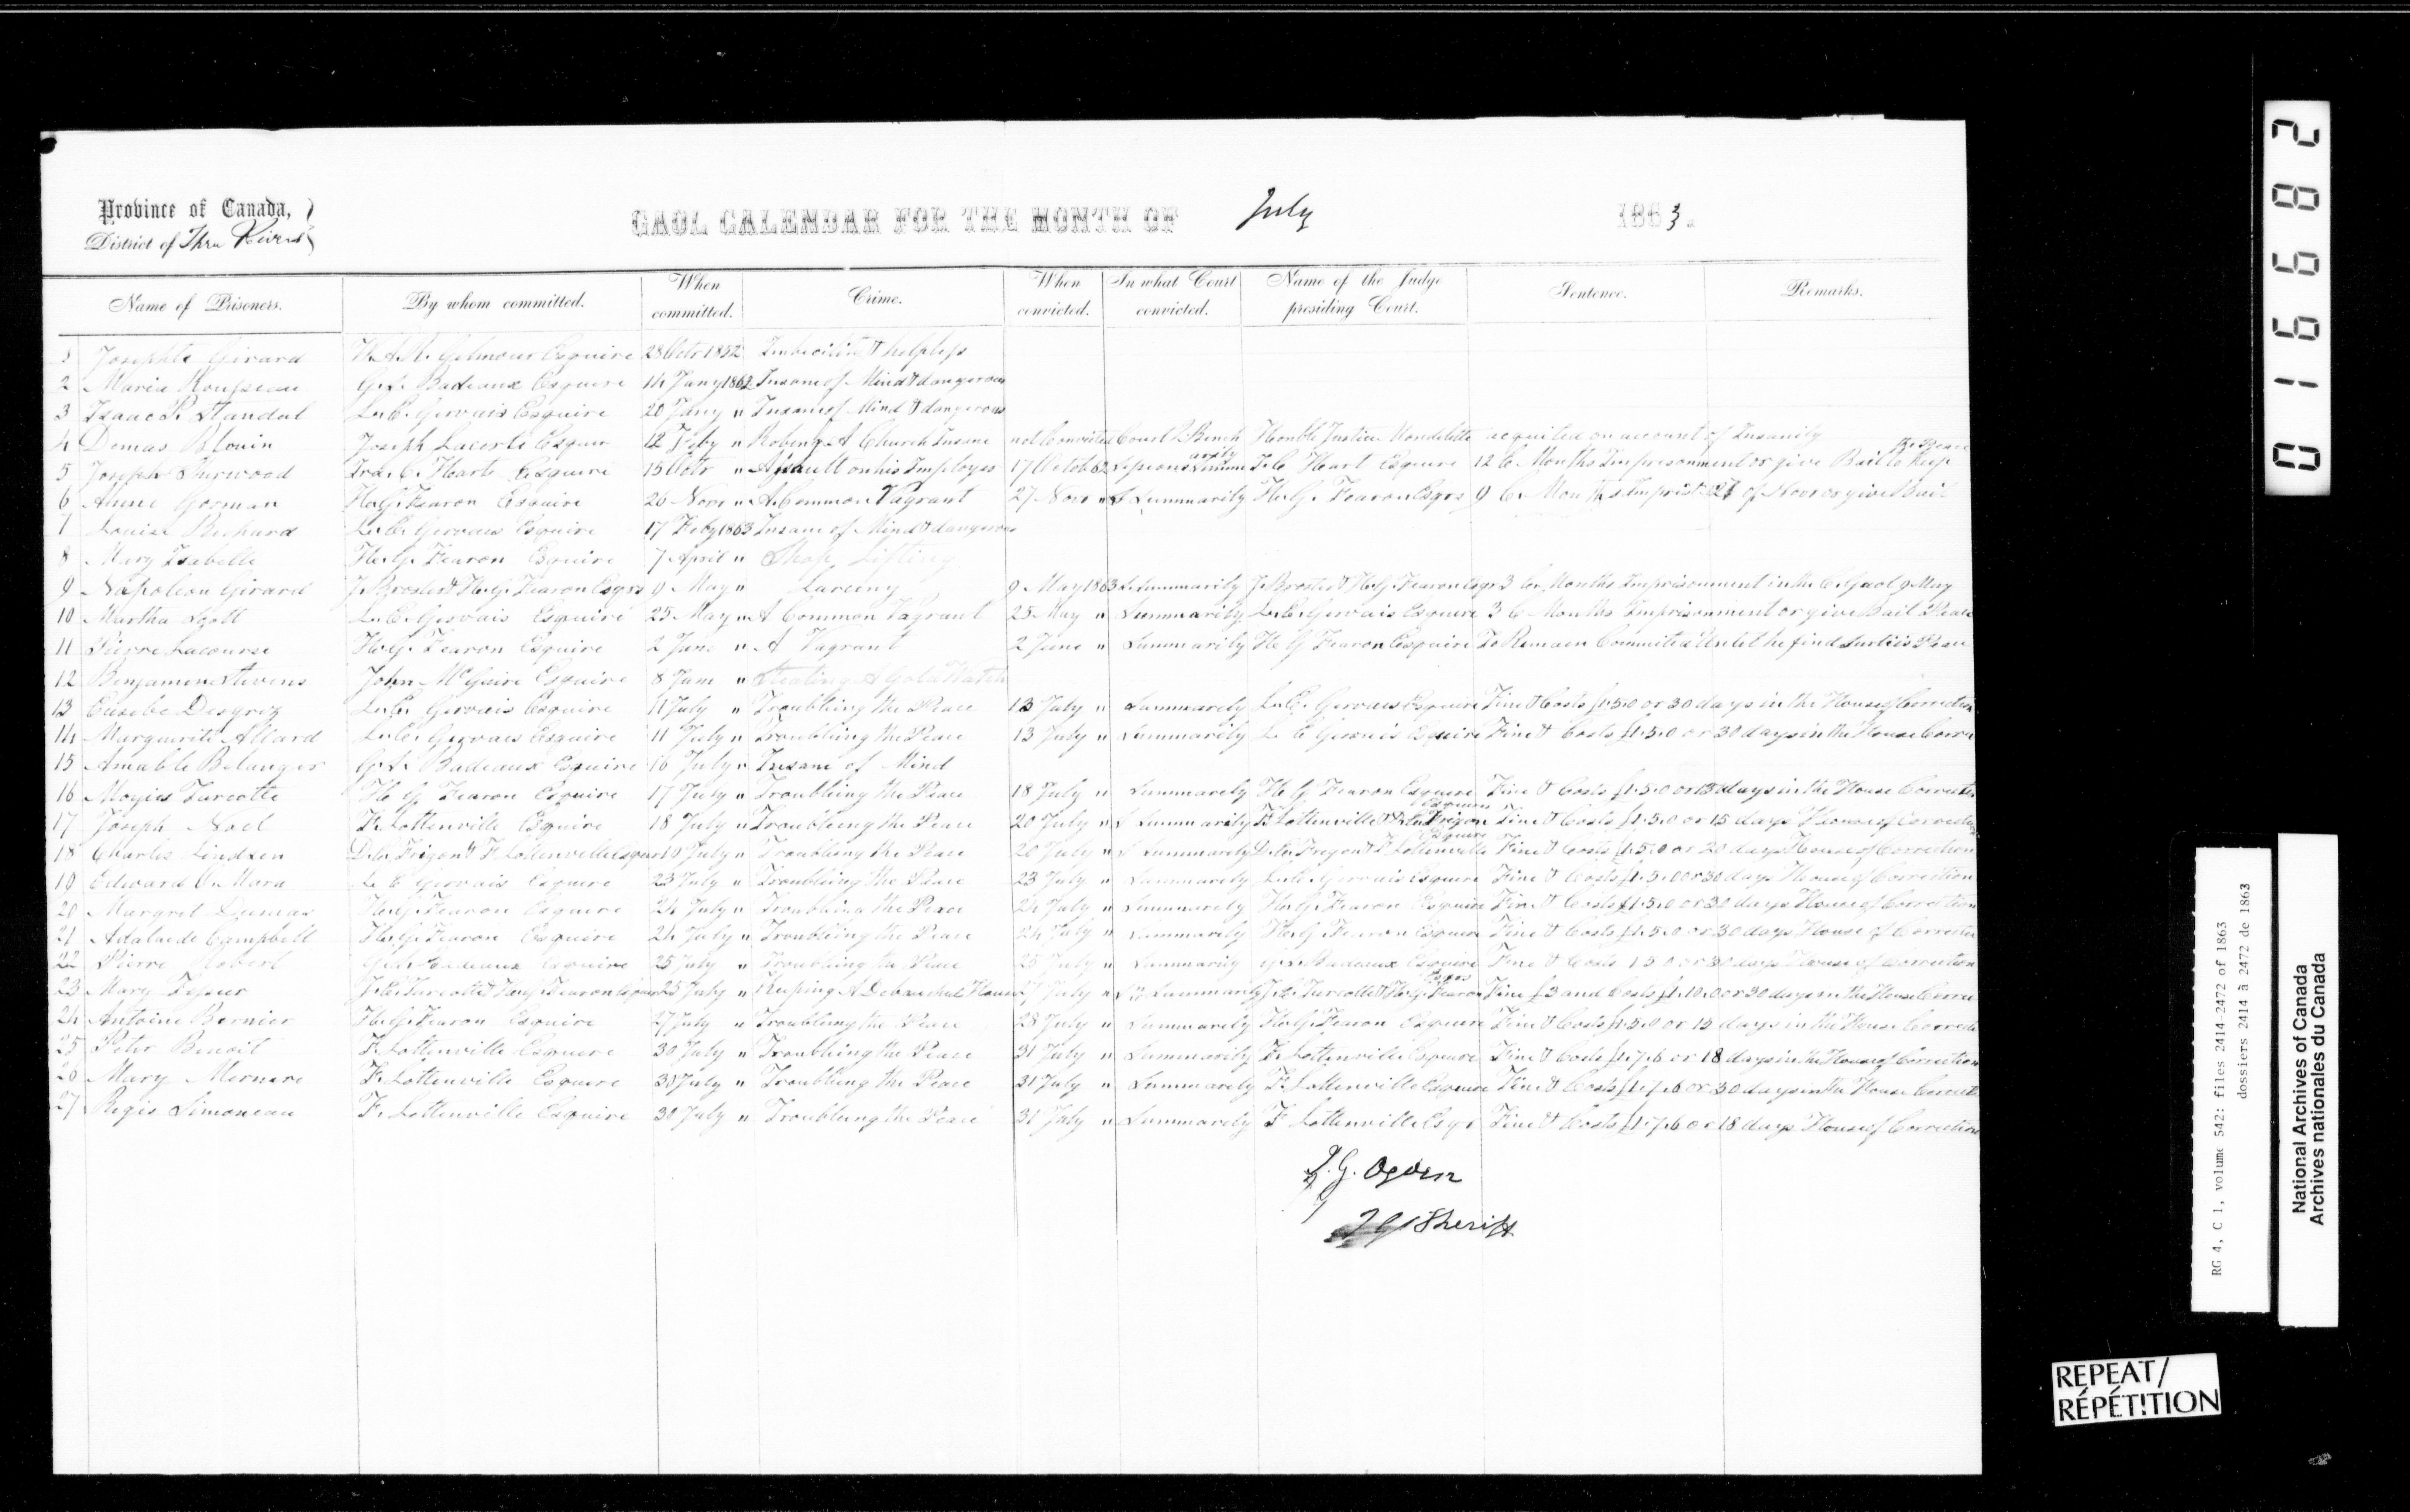 Province of Canada,
District of Three Rivers
GAOL CALENDAR FOR THE MONTH OF July 1863.
Name of Prisoners. By whom committed. When committed. Crime. When convicted. In what Court convicted. Name of the Judge presiding Court. Sentence. Remarks.
1 Josephte Girard Esquire 28 Octr 1852 Imbecility & helpless
2 Maria Rousseau G. S. Badeaux Esquire 14 Jany 1862 Insane of Mind & dangerous
3 Isaac R. Standal L. E. Gervais Esquire 20 Jany " Insane of Mind & dangerous
4 Demas Blouin Joseph Lacerte Esquire 12 Feby " Robing A Church Insane not Convicted Court Q Bench Honble Justice Mondelette acquited on account of Insanity
5 Joseph Shirwood Ira C. Hart Esquire 15 Octr " Assault on his Imployer 17 Octob 62 I. C. Hart Esquire 12 C. Months Imprisonment or give Bail to Keep the Peace
6 Anne Gorman H. G. Fearon Esquire 26 Novr " A Common Vagrant 27 Novr " Summarily H. G. Fearon Esqre 9 C. Months Imprist 27 of Novr or give Bail
7 Louise Richard L. E. Gervais Esquire 17 Feby 1863 Insane of Mind & dangerous
8 Mary Isabelle H. G. Fearon Esquire 7 April " Shop Lifting
9 Napoleon Girard J. Broster & H. G. Fearon Esqrs 9 May " Larceny 9 May 1863 Summarily J. Broster & H. G. Fearon Esqrs 3 Months Imprisonment in the C. Gaol 9 May
10 Martha Scott L. E. Gervais Esquire 25 May " A Common Vagrant 25 May " Summarily L. E. Gervais Esquire 3 C Months Imprisonment or give Bail Peace
11 Pierre Lacourse H. G. Fearon Esquire 2 June " A Vagrant 2 June " Summarily H. G. Fearon Esquire To Remain Committed Until he find Surtiis Peace
12 Benjamin Stevens John McGuire Esquire 8 June " Steating A Gold Watch
13 Eusebe Desgroz L. E. Gervais Esquire 11 July " Troubling the Peace 13 July " Summarily L. E. Gervais Esquire Fine & Costs £1.5.0 or 30 days in the House of Correction
14 Marguerite Allard L. E. Gervais Esquire 11 July " Troubling the Peace 13 July " Summarily L. E. Gervais Esquire Fine & Costs £1.5.0 or 30 days in the House Corre
15 Amable Belanger G. S. Badeaux Esquire 16 July " Insane of Mind
16 Moyies Turcotte H. G. Fearon Esquire 17 July " Troubling the Peace 18 July " Summarily H. G. Fearon Esquire Fine & Costs £1.5.0 or 15 days in the House Correction
17 Joseph Noel F. Lottenville Esquire 18 July " Troubling the Peace 20 July " Summarily F. Lottenville & Frigon Esquires Fine & Costs £1.5.0 or 15 days House of Correction
18 Charles Lindzen D. C. Frigon & F. Lottenville Esqur 19 July " Troubling the Peace 20 July " Summarily D. C. Frigon & F. Lottenville Esquire Fine & Costs £1.5.0 or 20 days House of Correction
19 Edward O. Mara L. E. Gervais Esquire 23 July " Troubling the Peace 23 July " Summarily L. E. Gervais Esquire Fine & Costs £1.5.0 or 30 days House of Correction
20 Margret Dumas H. G. Fearon Esquire 24 July " Troubling the Peace 24 July " Summarily H. G. Fearon Esquire Fine & Costs £1.5.0 or 30 days House of Correction
21 Adalaide Campbell H. G. Fearon Esquire 24 July " Troubling the Peace 24 July " Summarily H. G. Fearon Esquire Fine & Costs £1.5.0 or 30 days House of Correction
22 Pierre Robert G. S. Badeaux Esquire 25 July " Troubling the Peace 25 July " Summarily G. S. Badeaux Esquire Fine & Costs 1 5 0 or 30 days House of Correction
23 Mary J. E. Turcotte & H. G. Fearon Esquire 25 July " Keeping A Debauched House 27 July " Summarily J. E. Turcotte & H. G. Fearon Esqrs Fine £3 and Costs £1.10.0 or 30 days in the House Corre
24 Antoine Bernier H. G. Fearon Esquire 27 July " Troubling the Peace 28 July " Summarily H. G. Fearon Esquire Fine & Costs £1.5.0 or 15 days in the House Correcte
25 Peter Benoit F. Lottenville Esquire 30 July " Troubling the Peace 31 July " Summarily F. Lottenville Esquire Fine & Costs £1.7.6 or 18 days in the House of Correction
26 Mary F. Lottenville Esquire 30 July " Troubling the Peace 31 July " Summarily F. Lottenville Esquire Fine & Costs £1.7.6 or 30 days in the House Correct
27 Regis Simoneau F. Lottenville Esquire 30 July " Troubling the Peace 31 July " Summarily F. Lottenville Esqr Fine & Costs £1.7.6 or 18 days House of Correction
I. G. Ogden
Sheriff
016682
RG 4, C 1, volume 542: files 2414-2472 of 1863
dossiers 2414 à 2472 de 1863
National Archives of Canada
Archives nationales du Canada
REPEAT/
RÉPÉTITION